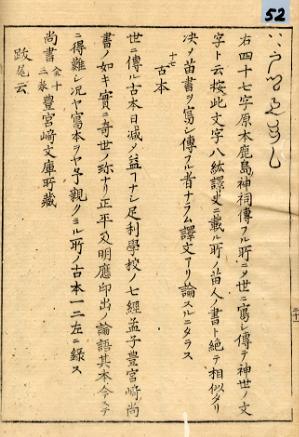 52
右四十七字原本鹿島神祠傳フル所ニメ世ニ寫シ傳テ神世ノ文
字ト云按此文字八紘譯史ニ載ル所ノ苗人ノ書ト絶テ相似タリ
决メ苗書ヲ寫シ傳フル者ナラム譯文アリ論スルニタラス
十七
古本
世ニ傳ル古本日減メ益フナシ足利學校ノ七經孟子豊宮﨑尚
書ノ如キ實ニ奇世ノ珎ナリ正平及明應印出ノ論語其本今ステ
ニ得難シ况ヤ寫本ヲヤ予親クミル所ノ古本一二左ニ録ス
尚書 全十三卷 豊宮﨑文庫所藏
跋尾云